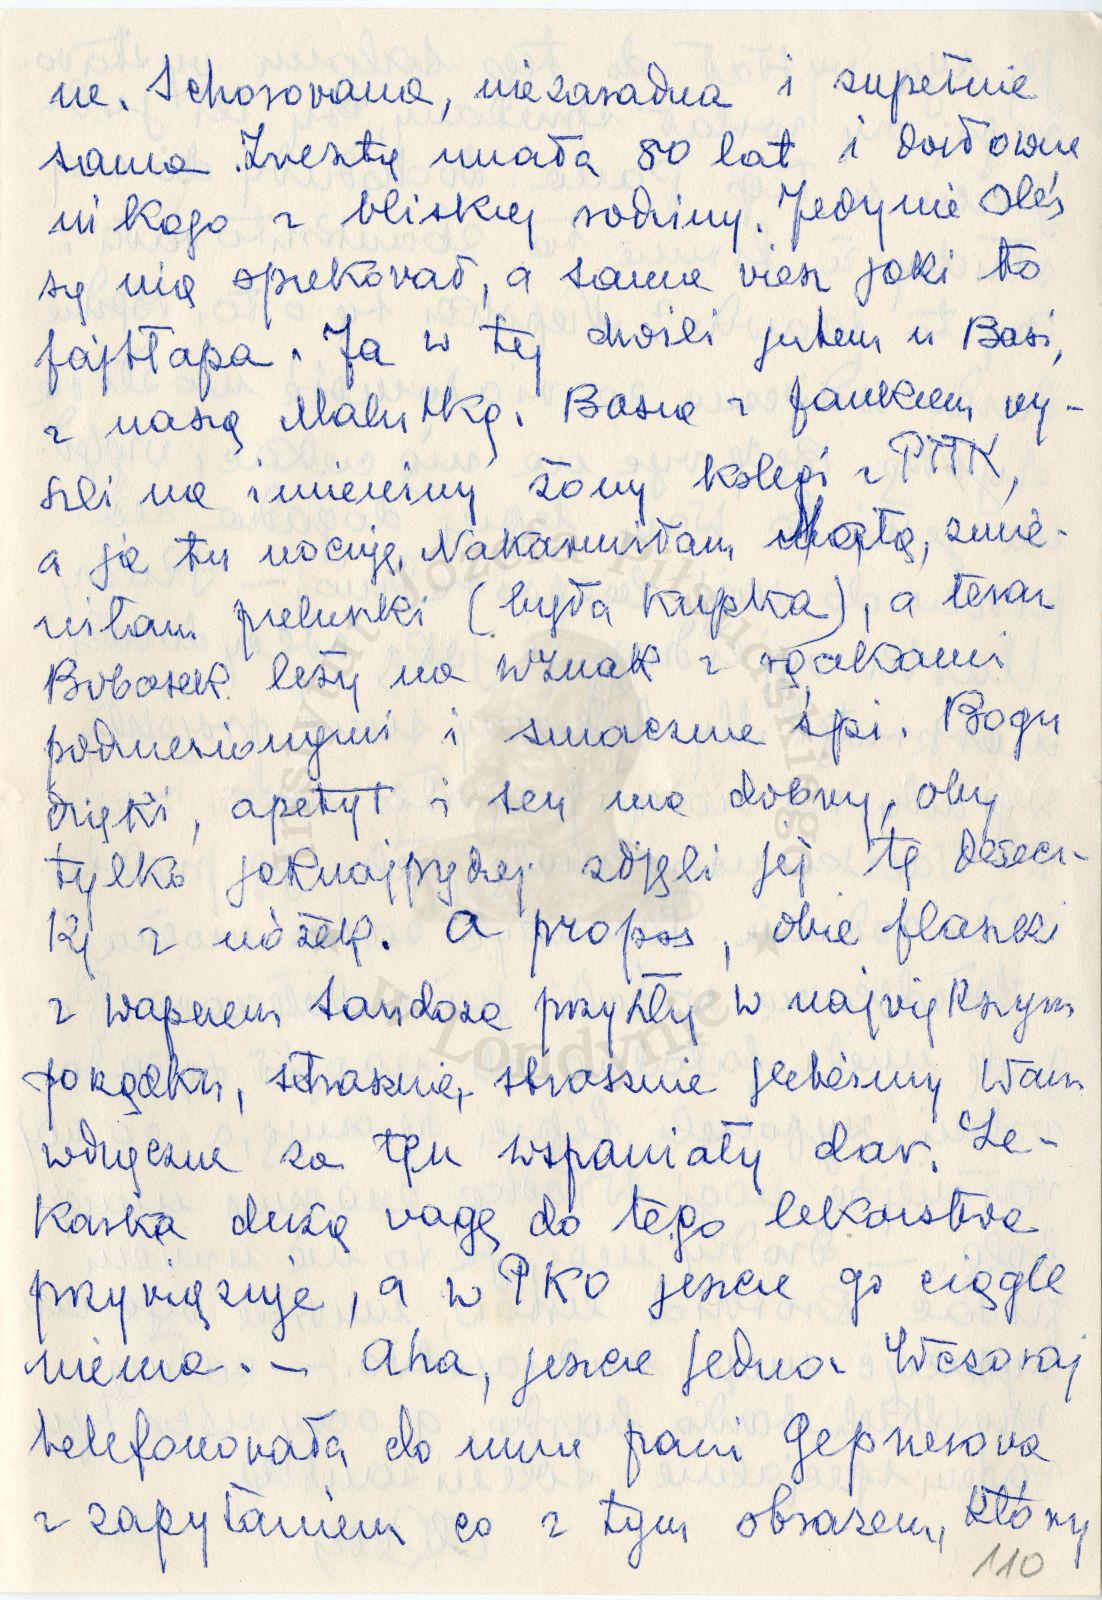 ne. Schorowana, niezaradna i zupełnie
sama. Zresztą miała 80 lat i dosłownie
nikogo z bliskiej rodziny. Jedynie Oleś
się nią opiekował, a sama wiesz jaki to
fajtłapa. Ja w tej chwili jestem u Basi,
z naszą Malutką. Basia z Jankiem wy-
szli na imieniny żony kolegi z PTTK,
a ja tu nocuję. Nakarmiłam Małą, zmie-
niłam pieluszki (była kupka), a teraz
Bobasek leży na wznak z rączkami
podniesionymi i smacznie śpi. Bogu
dzięki, apetyt i sen ma dobry, oby
tylko jaknajprędzej zdjęli jej tę deseczkę
z nóżek. A propos, obie flaszki
z wapnem Sandoza przyszły w największym
porządku, strasznie, strasznie jesteśmy Wam
wdzięczne za ten wspaniały dar. Le-
karka dużą wagę do tego lekarstwa
przywiązuje, a w PKO jeszcze go ciągle
niema. — Aha, jeszcze jedno. Wczoraj
telefonowała do mnie pani Gepnerowa
z zapytaniem co z tym obrazem, który
110
Instytut Józefa Piłsudskiego
w Londynie